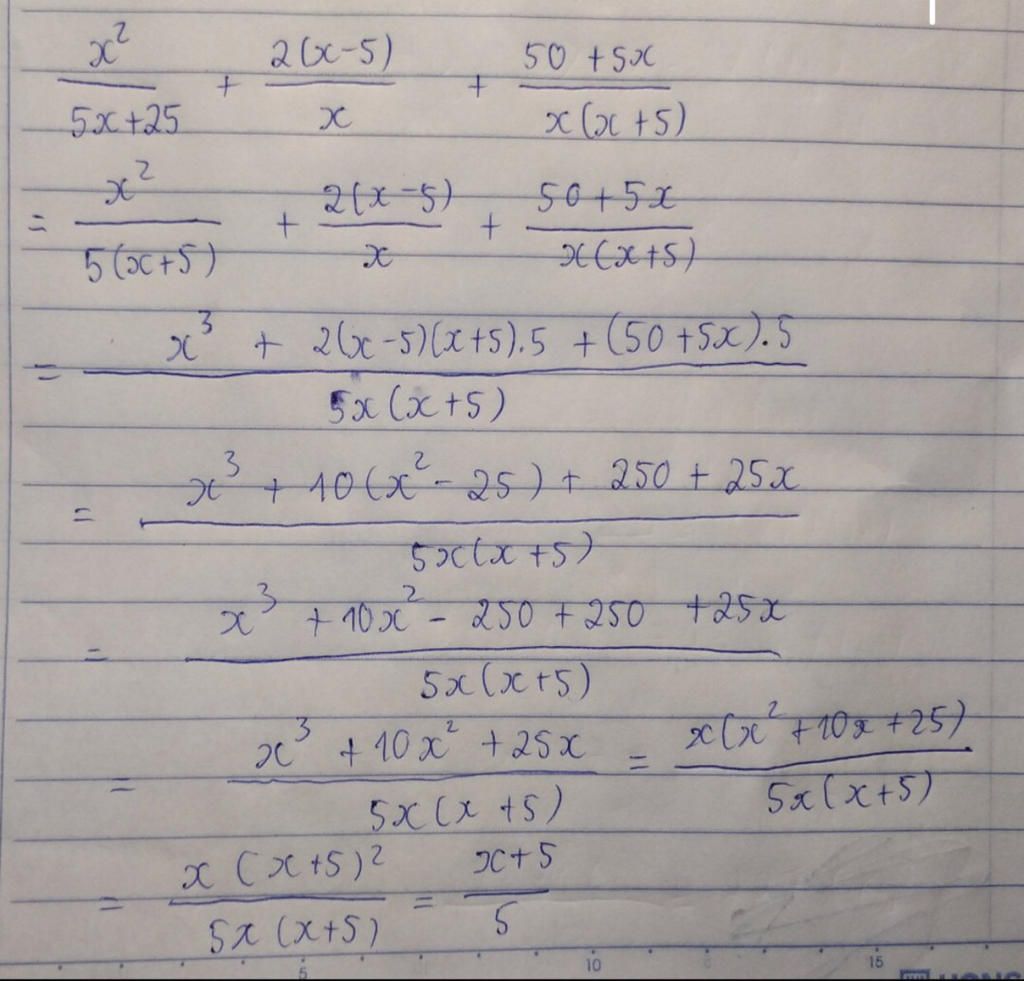 x²/(5x+25) + 2(x-5)/x + (50+5x)/(x(x+5))
= x²/(5(x+5)) + 2(x-5)/x + (50+5x)/(x(x+5))
= (x³ + 2(x-5)(x+5).5 + (50+5x).5)/(5x(x+5))
= (x³ + 10(x²-25) + 250 + 25x)/(5x(x+5))
= (x³ + 10x² - 250 + 250 + 25x)/(5x(x+5))
= (x³ + 10x² + 25x)/(5x(x+5)) = x(x²+10x+25)/(5x(x+5))
= x(x+5)²/(5x(x+5)) = (x+5)/5
5 10 15